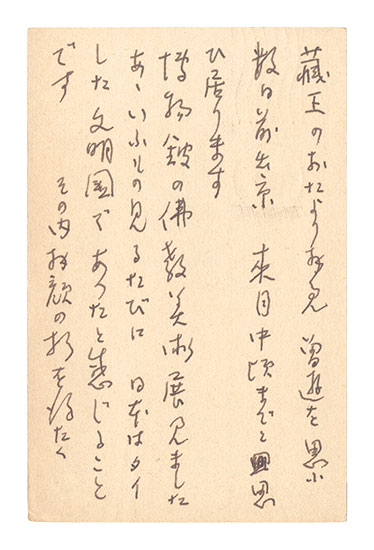 藏王のおたより拝見 曽遊を思ふ
数日前出京 来月中頃までと思
ひ居ります
博物館の佛教美術展見ました
あゝいふもの見るたびに 日本はタイ
した文明國であつたと感じること
です その内拝顔の折を得たく